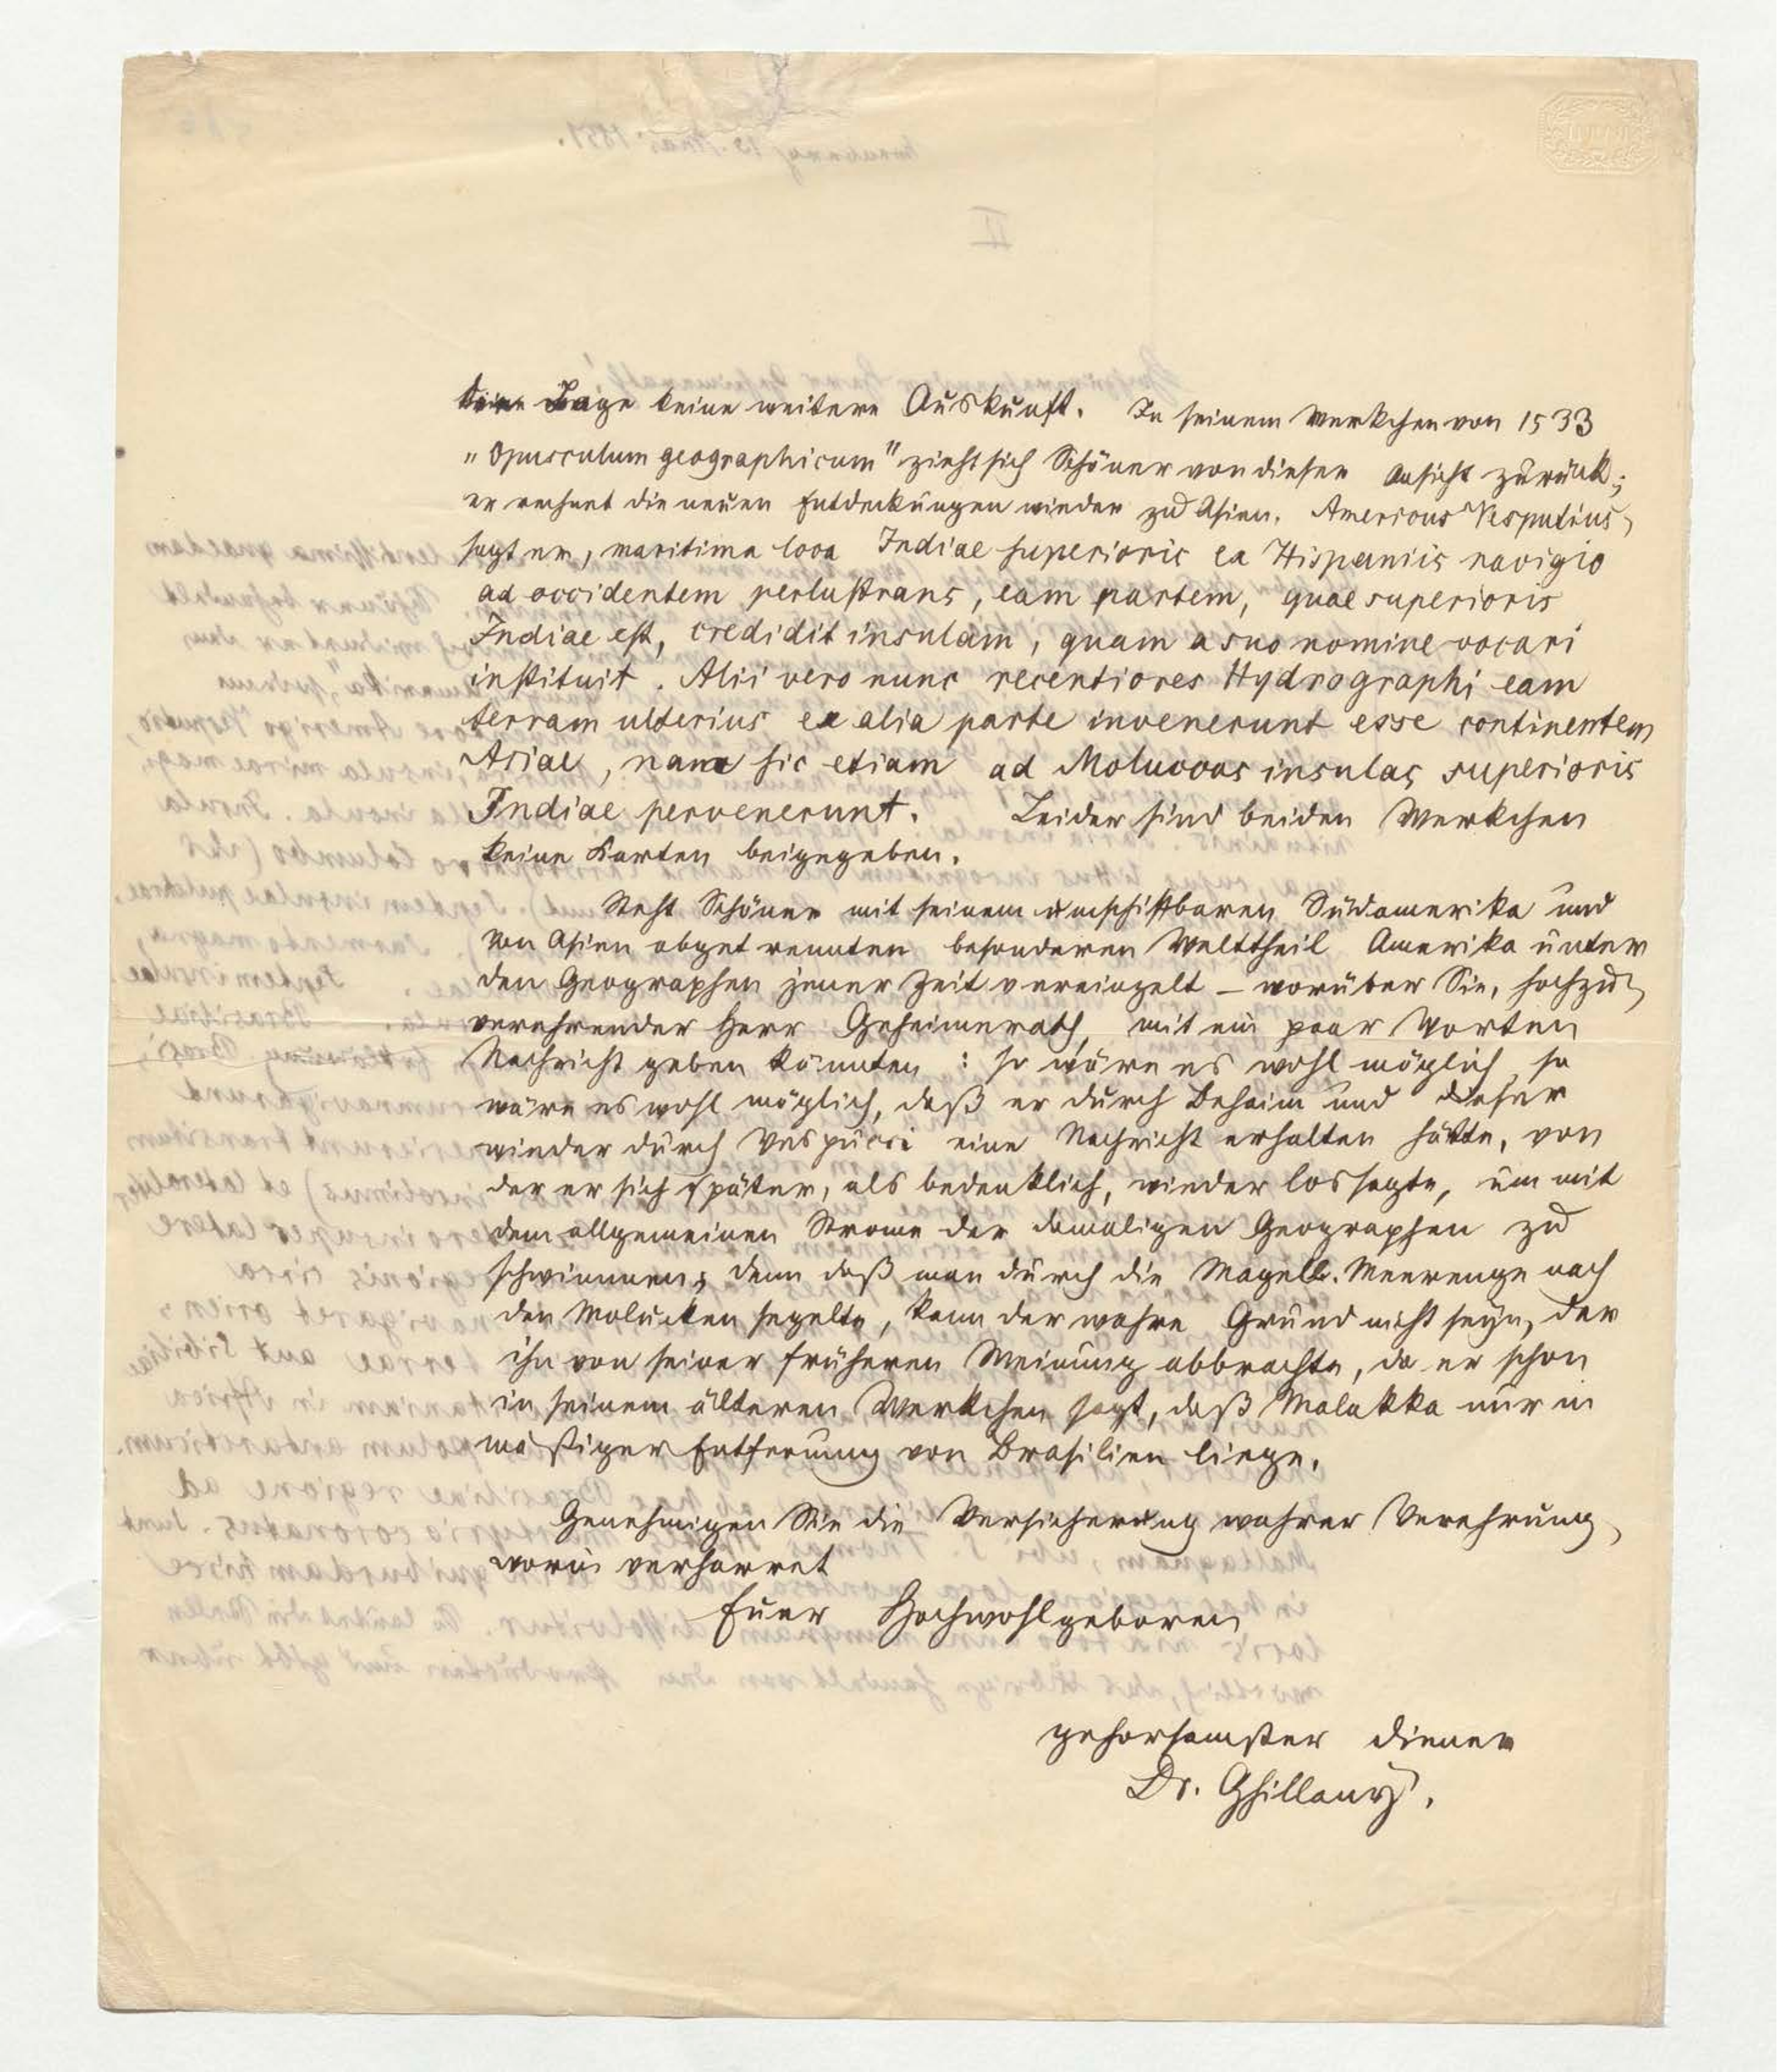 Lage keine weitere Auskunft. In seinem Werkchen von 1533
„Opusculum geographicum" zieht sich Schöner von dieser Ansicht zurück;
er rechnet die neuen Entdeckungen wieder zu Asien. Americus Vesputius,
sagt er, maritima loca Indiae superioris ex Hispaniis navigio
ad occidentem perlustrans, eam partem, quae superioris
Indiae est, credidit insulam, quam a suo nomine vocari
instituit. Alii vero nunc recentiores Hydrographi eam
terram ulterius ex alia parte invenerunt esse continentem
Asiae, nam sic etiam ad Moluccas insulas superioris
Indiae pervenerunt. Leider sind beiden Werkchen
keine Karten beigegeben.
Steht Schöner mit seinem umschiffbaren Südamerika und
von Asien abgetrennten besonderen Welttheil Amerika unter
den Geographen jener Zeit vereinzelt – worüber Sie, hochzu
verehrender Herr Geheimerath, mit ein paar Worten
Nachricht geben könnten : so wäre es wohl möglich, so
wäre es wohl möglich, daß er durch Behaim und dieser
wieder durch Vespucci eine Nachricht erhalten hätte, von
der er sich später, als bedenklich, wieder lossagte, um mit
dem allgemeinen Strome der damaligen Geographen zu
schwimmen; denn daß man durch die Magell. Meerenge nach
den Molucken segelte, kann der wahre Grund nicht seyn, der
ihn von seiner früheren Meinung abbrachte, da er schon
in seinem älteren Werkchen sagt, daß Malakka nur in
mäßiger Entfernung von Brasilien liege.
Genehmigen Sie die Versicherung wahrer Verehrung,
worin verharret
Euer Hochwohlgeboren
gehorsamster Diener
Dr. Ghillany.